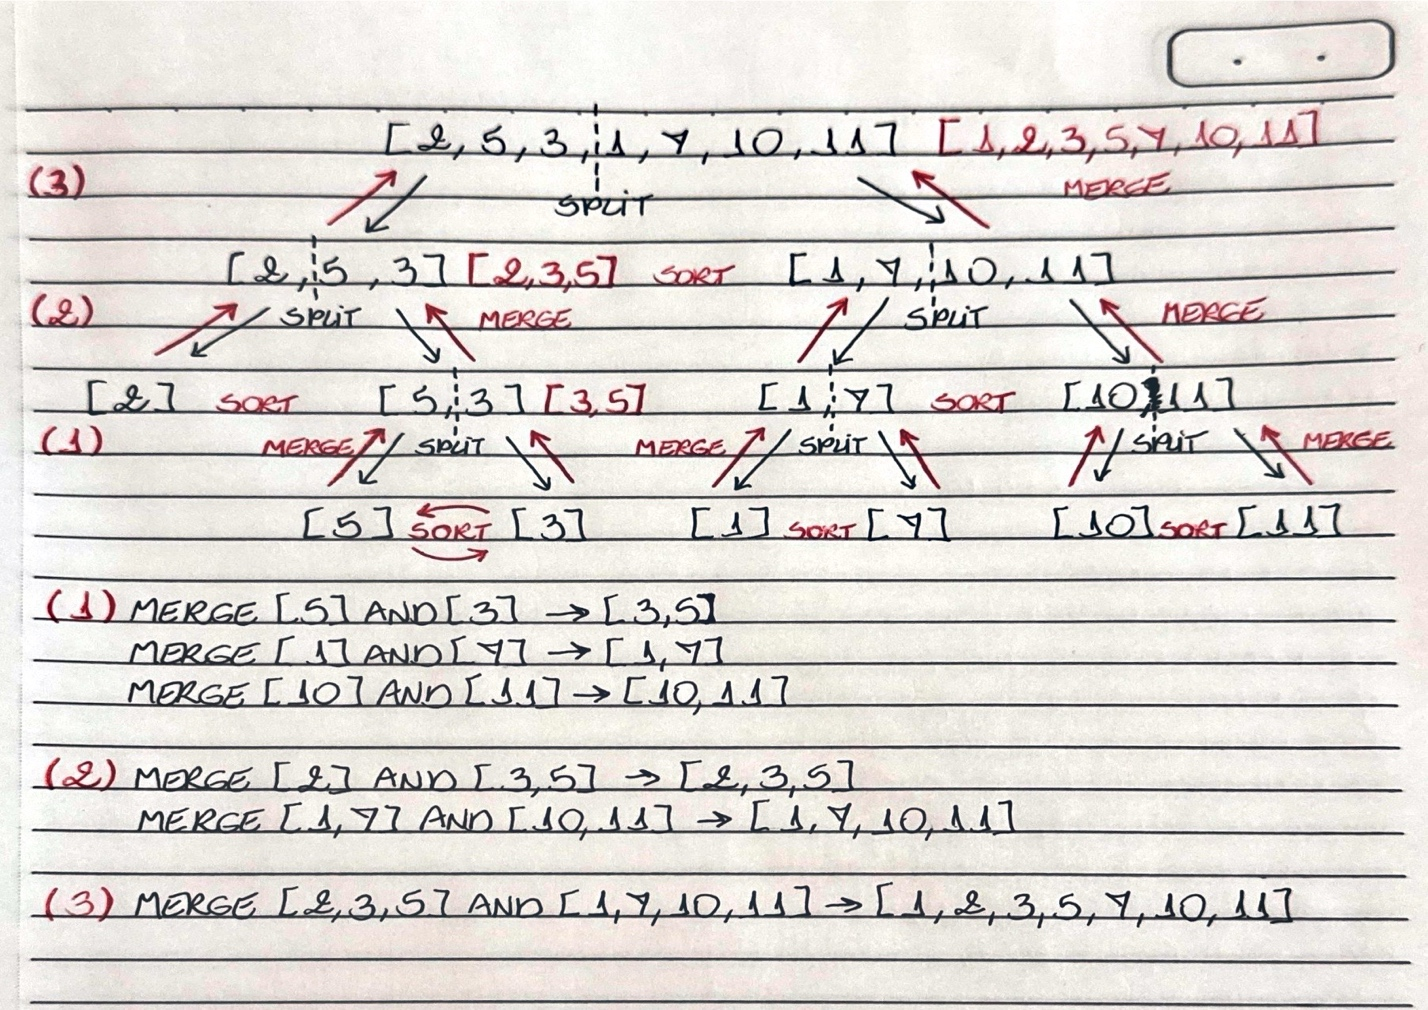 [2, 5, 3, 1, 7, 10, 11] [1, 2, 3, 5, 7, 10, 11]
(3) SPLIT MERGE
[2, 5, 3] [2, 3, 5] SORT [1, 7, 10, 11]
(2) SPLIT MERGE SPLIT MERGE
[2] SORT [5, 3] [3, 5] [1, 7] SORT [10, 11]
(1) MERGE SPLIT MERGE SPLIT SPLIT MERGE
[5] SORT [3] [1] SORT [7] [10] SORT [11]
(1) MERGE [5] AND [3] → [3, 5]
MERGE [1] AND [7] → [1, 7]
MERGE [10] AND [11] → [10, 11]
(2) MERGE [2] AND [3, 5] → [2, 3, 5]
MERGE [1, 7] AND [10, 11] → [1, 7, 10, 11]
(3) MERGE [2, 3, 5] AND [1, 7, 10, 11] → [1, 2, 3, 5, 7, 10, 11]